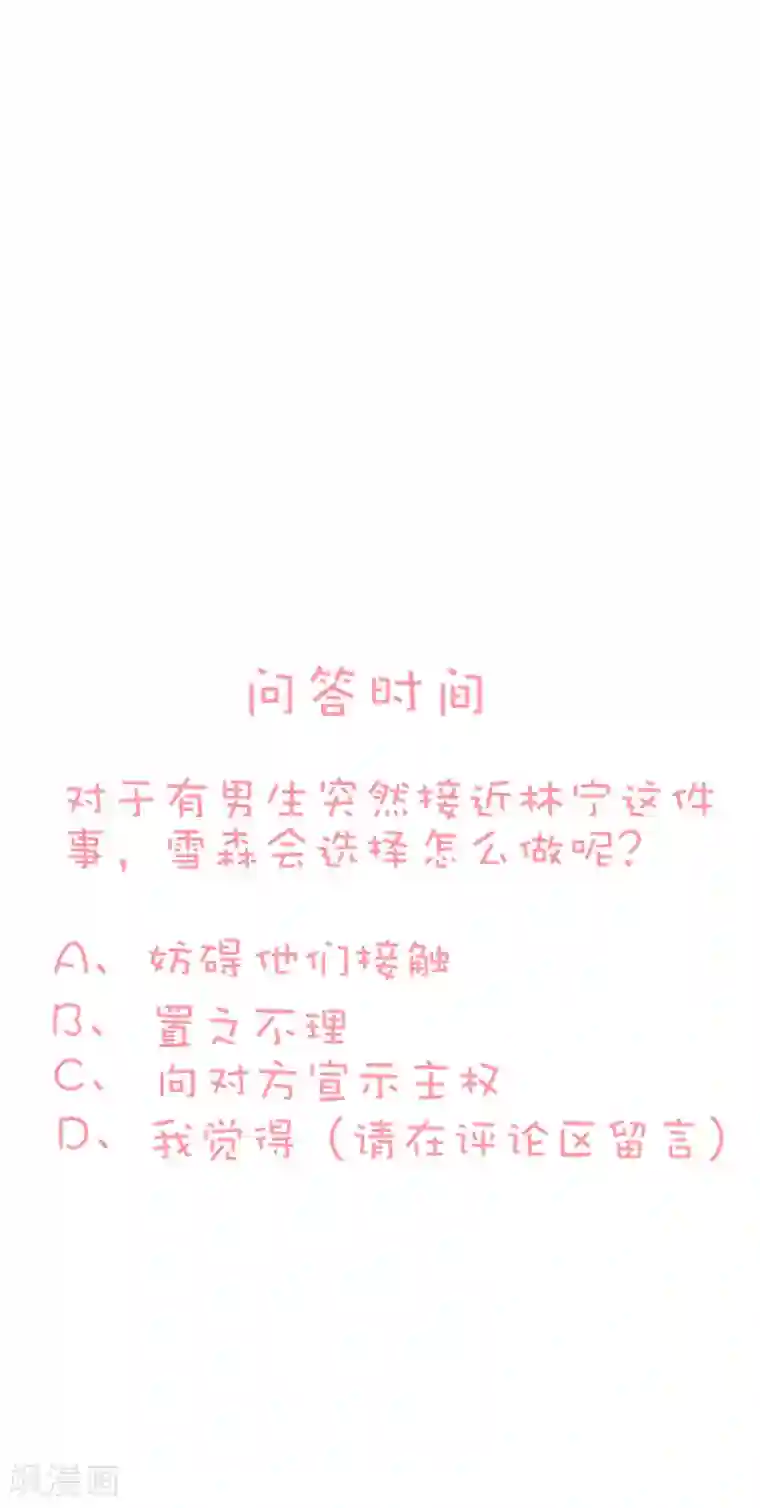 问答时间
对于有男生突然接近林宁这件
事，雪森会选择怎么做呢？
A、妨碍他们接触
B、置之不理
C、向对方宣示主权
D、我觉得（请在评论区留言）
飒漫画